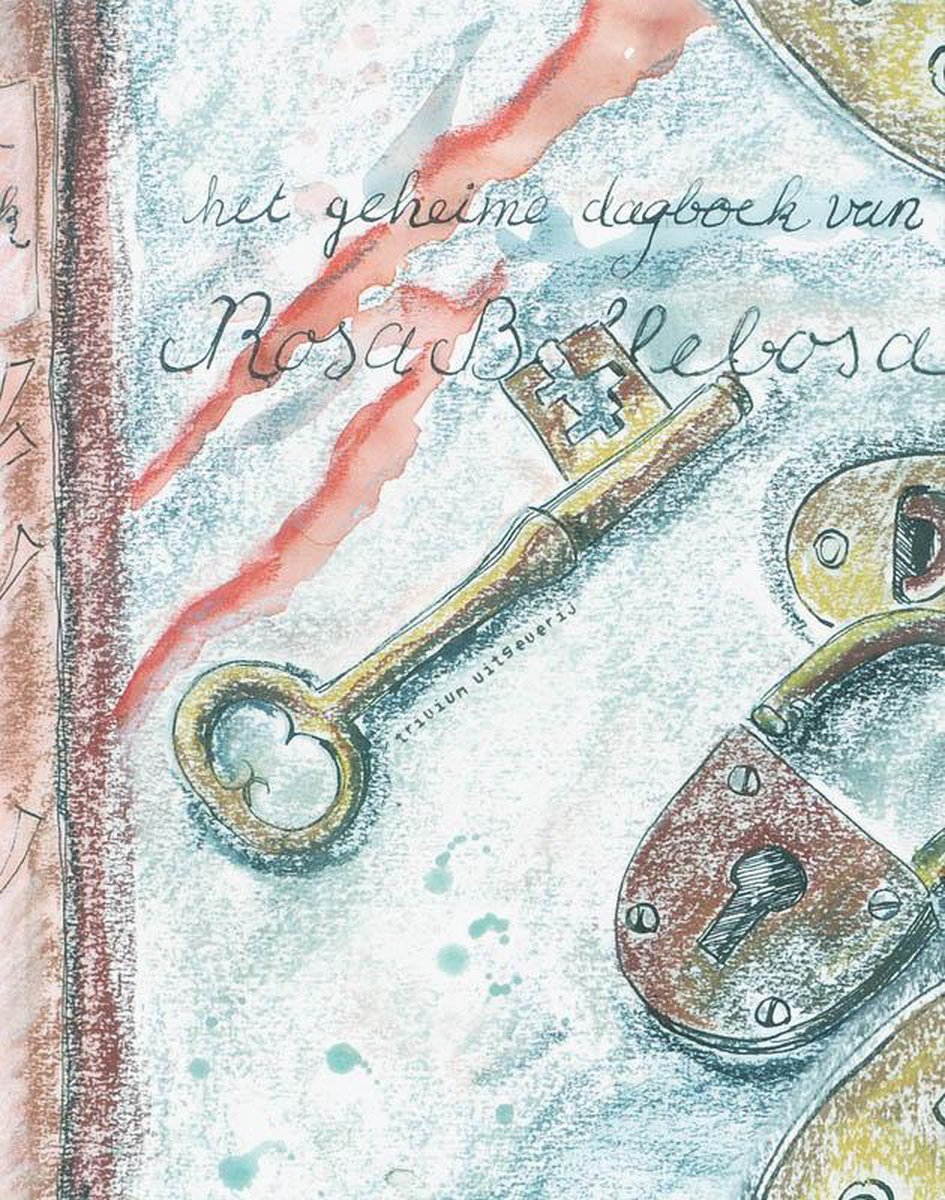 het geheime dagboek van
Rosa
trivium uitgeverij
k